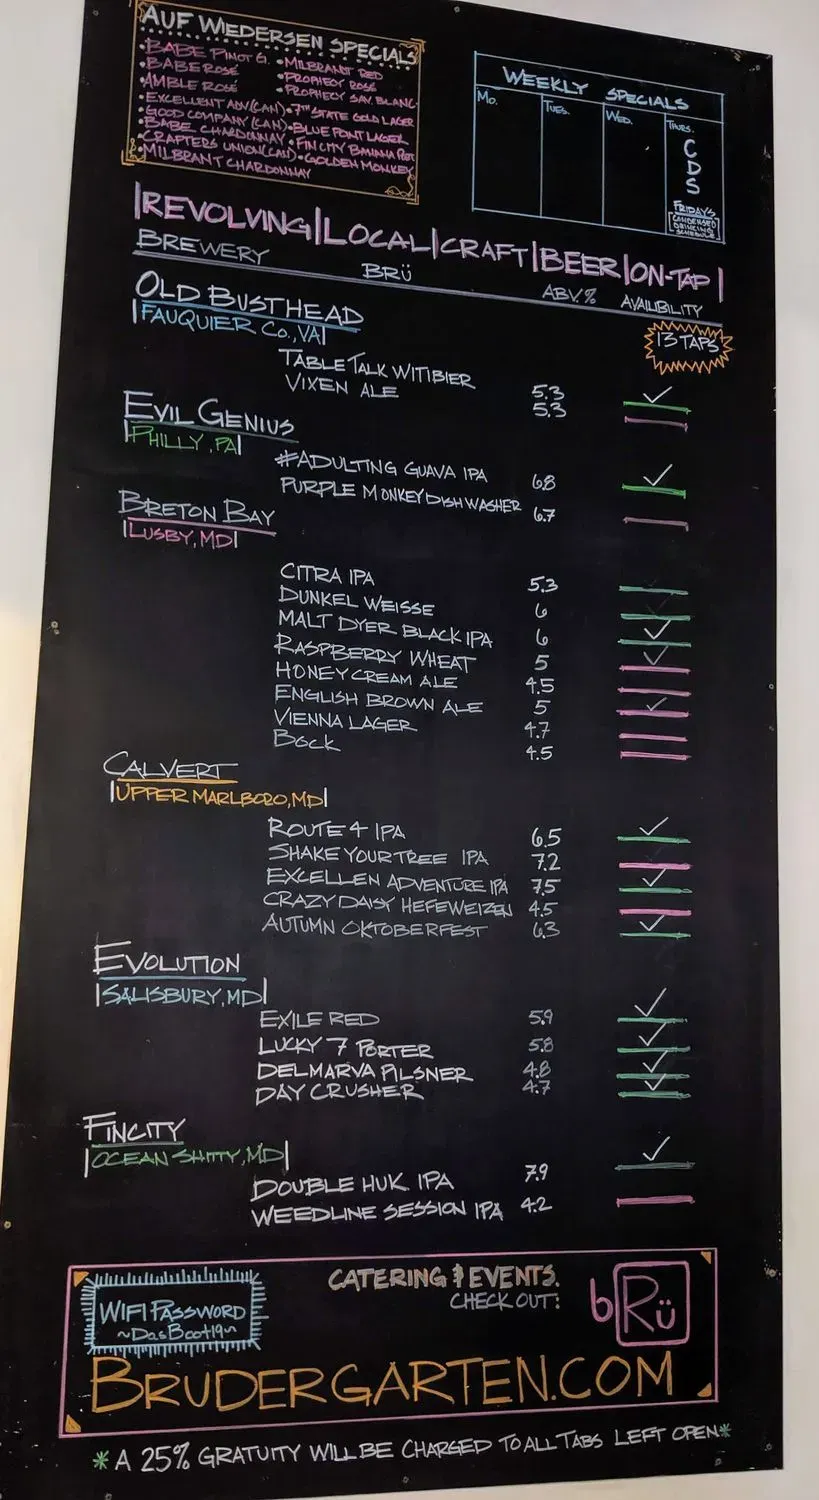 AUF WIEDERSEN SPECIALS
•BABE PINOT G. •MILBRANT RED
•BABE ROSÉ •PROPHECY ROSÉ
•AMBLE ROSÉ •PROPHECY SAV. BLANC
•EXCELLENT ADV(CAN) •7TH STATE GOLD LAGER
•GOOD COMPANY (CAN)
•BABE CHARDONNAY •BLUE POINT LAGER
•CRAFTERS UNION(CAN) •FIN CITY BANANA
•MILBRANT CHARDONNAY •GOLDEN MONKEY
WEEKLY SPECIALS
Mo. TUES. WED. THURS.
C
D
S
FRIDAY'S
[CONDENSED
DRINKING
SCHEDULE]
|REVOLVING|LOCAL|CRAFT|BEER|ON-TAP|
BREWERY BRÜ ABV.% AVAILIBILITY
OLD BUSTHEAD
|FAUQUIER Co.,VA|
13 TAPS
TABLE TALK WITIBIER 5.3 ✓
VIXEN ALE 5.3
EVIL GENIUS
|PHILLY, PA|
#ADULTING GUAVA IPA 6.8 ✓
PURPLE MONKEY DISHWASHER 6.7
BRETON BAY
|LUSBY, MD|
CITRA IPA 5.3
DUNKEL WEISSE 6
MALT DYER BLACK IPA 6 ✓
RASPBERRY WHEAT 5 ✓
HONEY CREAM ALE 4.5
ENGLISH BROWN ALE 5 ✓
VIENNA LAGER 4.7
BOCK 4.5
CALVERT
|UPPER MARLBORO, MD|
ROUTE 4 IPA 6.5 ✓
SHAKE YOUR TREE IPA 7.2
EXCELLEN ADVENTURE IPA 7.5 ✓
CRAZY DAISY HEFEWEIZEN 4.5
AUTUMN OKTOBERFEST 6.3 ✓
EVOLUTION
|SALISBURY, MD|
EXILE RED 5.9 ✓
LUCKY 7 PORTER 5.8 ✓
DELMARVA PILSNER 4.8 ✓
DAY CRUSHER 4.7 ✓
FINCITY
|OCEAN SHITTY, MD|
DOUBLE HUK IPA 7.9 ✓
WEEDLINE SESSION IPA 4.2
WIFI PASSWORD
~DasBoot19~
CATERING & EVENTS.
CHECK OUT:
bRü
BRUDERGARTEN.COM
*A 25% GRATUITY WILL BE CHARGED TO ALL TABS LEFT OPEN*